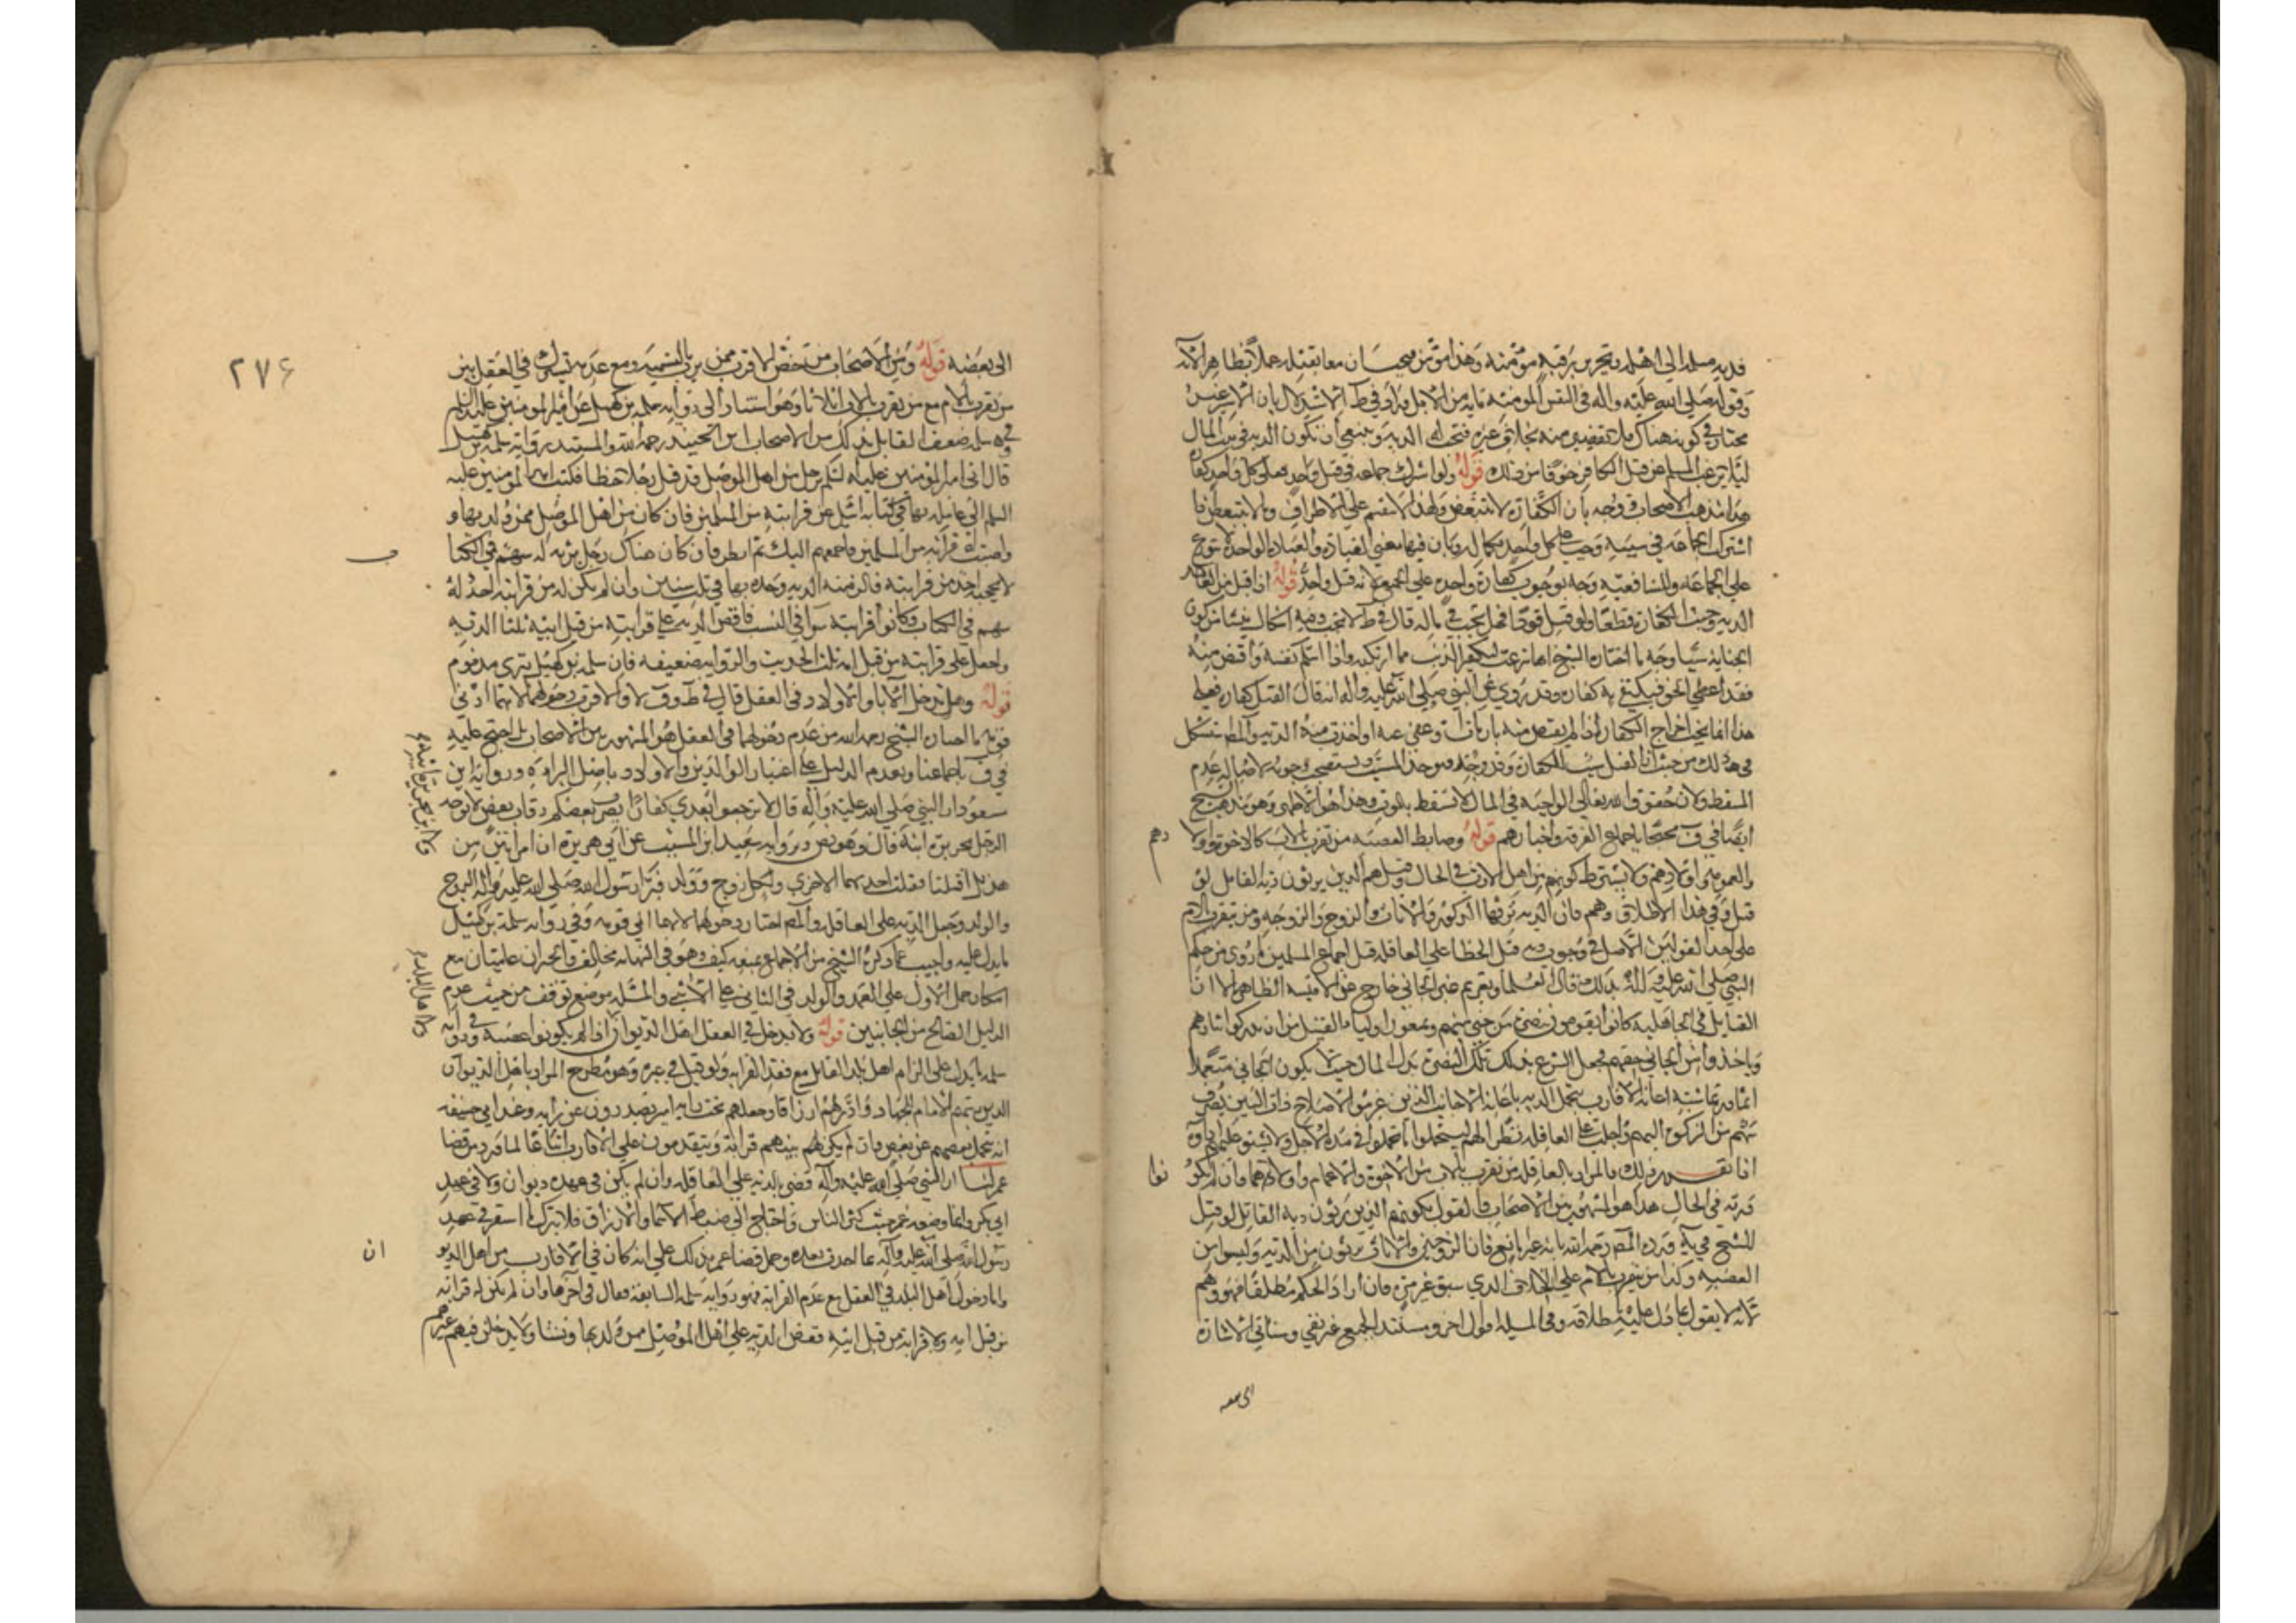 فدية مسلمة الى اهله وتحرير رقبة مؤمنة وهذا مؤمن فيجبان معا بقتله عملا بظاهر الآية
وقوله صلى الله عليه وآله في النفس المؤمنة مائة من الابل وزاد في ط الاستدلال بان الاسير غير
مختار في كونه هناك فلا تقصير منه بخلاف غيره فتجب له الدية وينبغي ان تكون الدية في بيت المال
المسلم عن قتل الكافر خوفا من ذلك قوله ولو اشترك جماعة في قتل واحد فعلى كل واحد كفارة
هذا مذهب الاصحاب ووجه بان الكفارة لا تتبعض ولهذا لا تقسم على الاطراف وما لا يتبعض اذا
اشترك الجماعة في سببه وجب على كل واحد بكماله وبان فيها معنى العبادة والعبادة الواحدة لا تتوزع
على الجماعة وللشافعية وجه بوجوب كفارة واحدة على الجميع لانه قتل واحد قوله اذا قبل من العامد
الدية وجبت الكفارة قطعا ولو قتل قودا فهل تجب في ماله قال في ط لا تجب وفيه اشكال ينشأ من كون
الجناية سببا وجه ما اختاره الشيخ انها شرعت لتكفير الذنب مما ارتكبه واذا سلم نفسه واقتص منه
فقد اعطى الحق فيكتفى به كفارة وقد روي عن النبي صلى الله عليه وآله انه قال القتل كفارة فعلى
هذا انما يجب اخراج الكفارة اذا لم يقتص منه بان مات او عفي عنه او اخذت منه الدية والمص استشكل
في ذلك من حيث ان القتل سبب الكفارة وقد وجد فيوجد المسبب ويستصحب وجوبه لاصالة عدم
المسقط ولان حقوق الله تعالى الواجبة في المال لا تسقط بالموت وهذا هو الاظهر وهو مذهب الشيخ
ايضا في ف محتجا باجماع الفرقة واخبارهم قوله وضابط العصبة من تقرب بالاب كالاخوة واولادهم
والعمومة واولادهم ولا يشترط كونهم من اهل الارث في الحال وقيل هم الذين يرثون دية القاتل لو
قتل وفي هذا الاطلاق وهم فان الدية يرثها الذكور والاناث والزوج والزوجة ومن يتقرب بالام
على احد القولين الاصل في وجوب دية قتل الخطأ على العاقلة قبل اجماع المسلمين ما روي من حكم
النبي صلى الله عليه وآله بذلك وقال العلماء وتغريم غير الجاني خارج عن الاقيسة الظاهرة الا ان
القبائل في الجاهلية كانوا يقومون بنصرة من جنى منهم ويمنعون اولياء القتيل من ان يدركوا ثارهم
وياخذوا من الجاني حقهم فجعل الشرع بدل تلك النصرة بذل المال حيث يكون الجاني متعمدا
اذا تقرر ذلك فالمراد بالعاقلة من تقرب بالاب من الاخوة والاعمام واولادهما وان لم يكونوا
ورثة في الحال هذا هو المشهور بين الاصحاب والقول بكونهم الذين يرثون دية القاتل لو قتل
للشيخ في ية ورده المص رحمه الله بانه غير مانع فان الزوجين والاناث يرثون من الدية وليسوا من
العصبة وكذا من يتقرب بالام على الخلاف الذي سبق غير مرة فان اراد الحكم مطلقا فهو وهم
لانه لا يقول بما دل عليه اطلاقه وفي المسئلة قول اخر ومستند الجميع غير نقي وسياتي الاشارة
الى بعضه
٢٧۶
الى بعضه قوله ومن الاصحاب من خص الاقرب ممن يرث بالتسمية ومع عدمه يشترك في العقل بين
من تقرب بالام مع من تقرب بالاب اثلاثا وهو استنادا الى رواية سلمة بن كهيل عن امير المؤمنين عليه السلم
وفي سلمة ضعف القائل بذلك من الاصحاب ابن الجنيد رحمه الله والمستند رواية سلمة بن كهيل
قال اتى امير المؤمنين عليه السلم برجل من اهل الموصل قد قتل رجلا خطا فكتب امير المؤمنين عليه
السلم الى عامله بها في كتابه اسئل عن قرابته من المسلمين فان كان من اهل الموصل ممن ولد بها و
واصبت له قرابة من المسلمين فاجمعهم اليك ثم انظر فان كان هناك رجل يرثه له سهم في الكتاب
لا يحجبه احد من قرابته فالزمه الدية وخذه بها في ثلث سنين وان لم يكن له من قرابته احد له
سهم في الكتاب وكانوا قرابته سواء في النسب فاقض الدية على قرابته من قبل ابيه ثلثا الدية
واجعل على قرابته من قبل امه ثلث الحديث والرواية ضعيفة فان سلمة بن كهيل بتري مذموم
قوله وهل يدخل الآباء والاولاد في العقل قال في ط وف لا والاقرب دخولهما لانهما ادنى
قومه ما اختاره الشيخ رحمه الله من عدم دخولهما في العقل هو المشهور بين الاصحاب بل احتج عليه
في ف باجماعنا وبعدم الدليل على اعتبار الوالدين والاولاد باصل البراءة ورواية ابن
مسعود ان النبي صلى الله عليه وآله قال لا ترجعوا بعدي كفارا يضرب بعضكم رقاب بعض لا يؤخذ
الرجل بجريرة ابنه قال وهو نص ورواية سعيد ابن المسيب عن ابي هريرة ان امراتين من
هذيل اقتتلتا فقتلت احديهما الاخرى ولكل زوج وولد فبرأ رسول الله صلى الله عليه وآله الزوج
والولد وجعل الدية على العاقلة والمص اختار دخولهما لانهما ادنى قومه وفي رواية سلمة بن كهيل
ما يدل عليه واجيب عما ذكره الشيخ من الاجماع بمنعه كيف وهو في النهاية مخالف والخبران عاميان مع
امكان حمل الاول على العمد والولد في الثاني على الانثى والمسئلة موضع توقف من حيث عدم
الدليل الصالح من الجانبين قوله ولا يدخل في العقل اهل الديوان اذا لم يكونوا عصبة وفي رواية
سلمة ما يدل على الزام اهل بلد القاتل مع فقد القرابة ولو قتل في غيره وهو مطرح المراد باهل الديوان
الذين رتبهم الامام للجهاد وادر لهم ارزاقا وجعلهم تحت راية امير يصدرون عن رايه وعند ابي حنيفة
انه يتحمل بعضهم عن بعض وان لم يكن بينهم قرابة ويتقدمون على الاقارب اتباعا لما ورد من قضاء
عمر لنا ان النبي صلى الله عليه وآله قضى بالدية على العاقلة وان لم يكن في عهده ديوان ولا في عهد
ابي بكر وانما وضعه عمر حيث كثر الناس واحتاج الى ضبط الاسماء والارزاق فلا يترك ما استقر في عهد
رسول الله صلى الله عليه وآله بما احدث بعده وحمل قضاء عمر بذلك على انه كان في الاقارب من اهل الديوان
واما دخول اهل البلد في العقل مع عدم القرابة فهو رواية سلمة السابقة فقال في آخرها وان لم يكن له قرابة
من قبل ابيه ولا قرابة من قبل امه فقض الدية على اهل الموصل ممن ولد بها ونشأ ولا يدخلن فيهم غيرهم